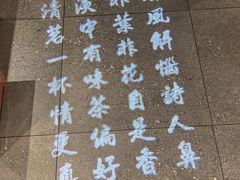 風解惱詩人鼻
非葉非花自是香
淡中有味茶偏好
清茗一杯情更真